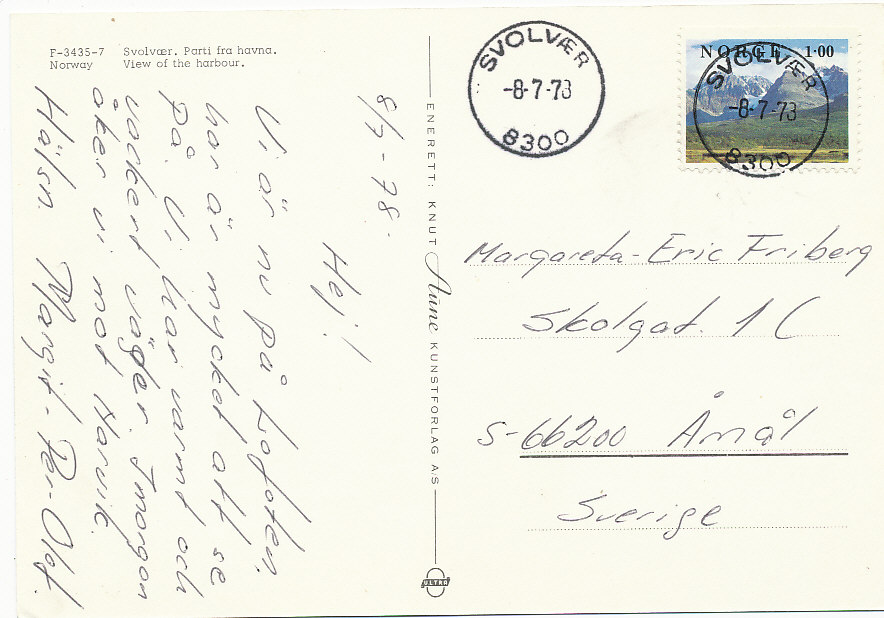 F-3435-7 Svolvær. Parti fra havna.
Norway View of the harbour.
8/7-78.
Hej!
Vi är nu på Lofoten,
har är mycket att se
på. Vi har varmt och
vackert väder. Imorgon
åker vi mot Narvik.
Hälsn. Margit-Per-Olof.
ENERETT: KNUT Aune KUNSTFORLAG A/S
ULTRA
SVOLVÆR
-8-7-78
8300
NORGE 1·00
SVOLVÆR
-8-7-78
8300
Margareta-Eric Friberg
Skolgat. 1 C
S-66200 Åmål
Sverige